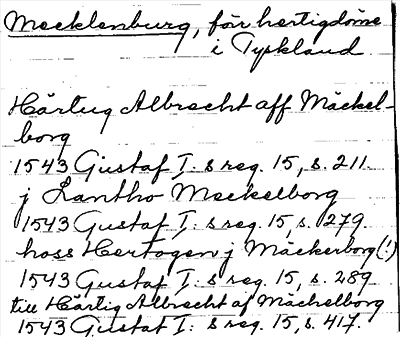 Mecklenburg, förr hertigdöme
i Tyskland
Härtug Albrecht aff Mäckel-
borg
1543 Gustaf I: s reg. 15, s. 211.
j Lantho Meckelborg
1543 Gustaf I: s reg. 15, s. 279
hoss Hertogen j Mäckerborg (!)
1543 Gustaf I: s reg. 15, s. 289
till Härtig Albrecht af Mäckelborg
1543 Gustaf I: s reg. 15, s. 417.